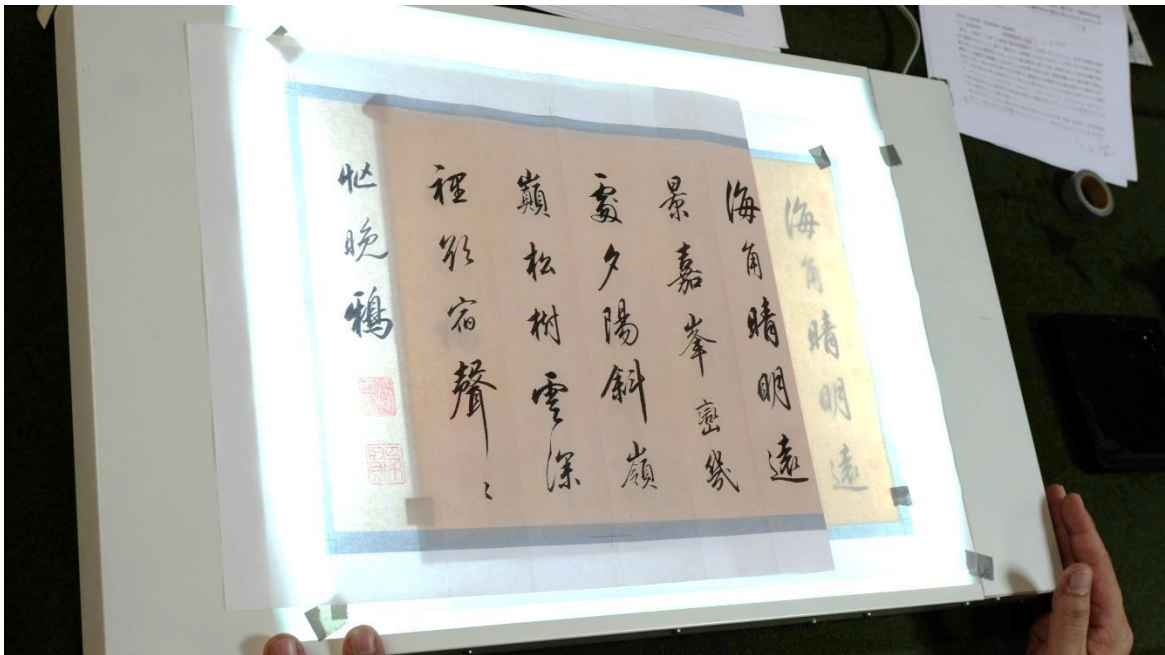 海角晴明遠
海角晴明遠
景嘉峯巒幾
處夕陽斜嶺
巔松樹雲深
裡欲宿聲〻
忙晚鴉